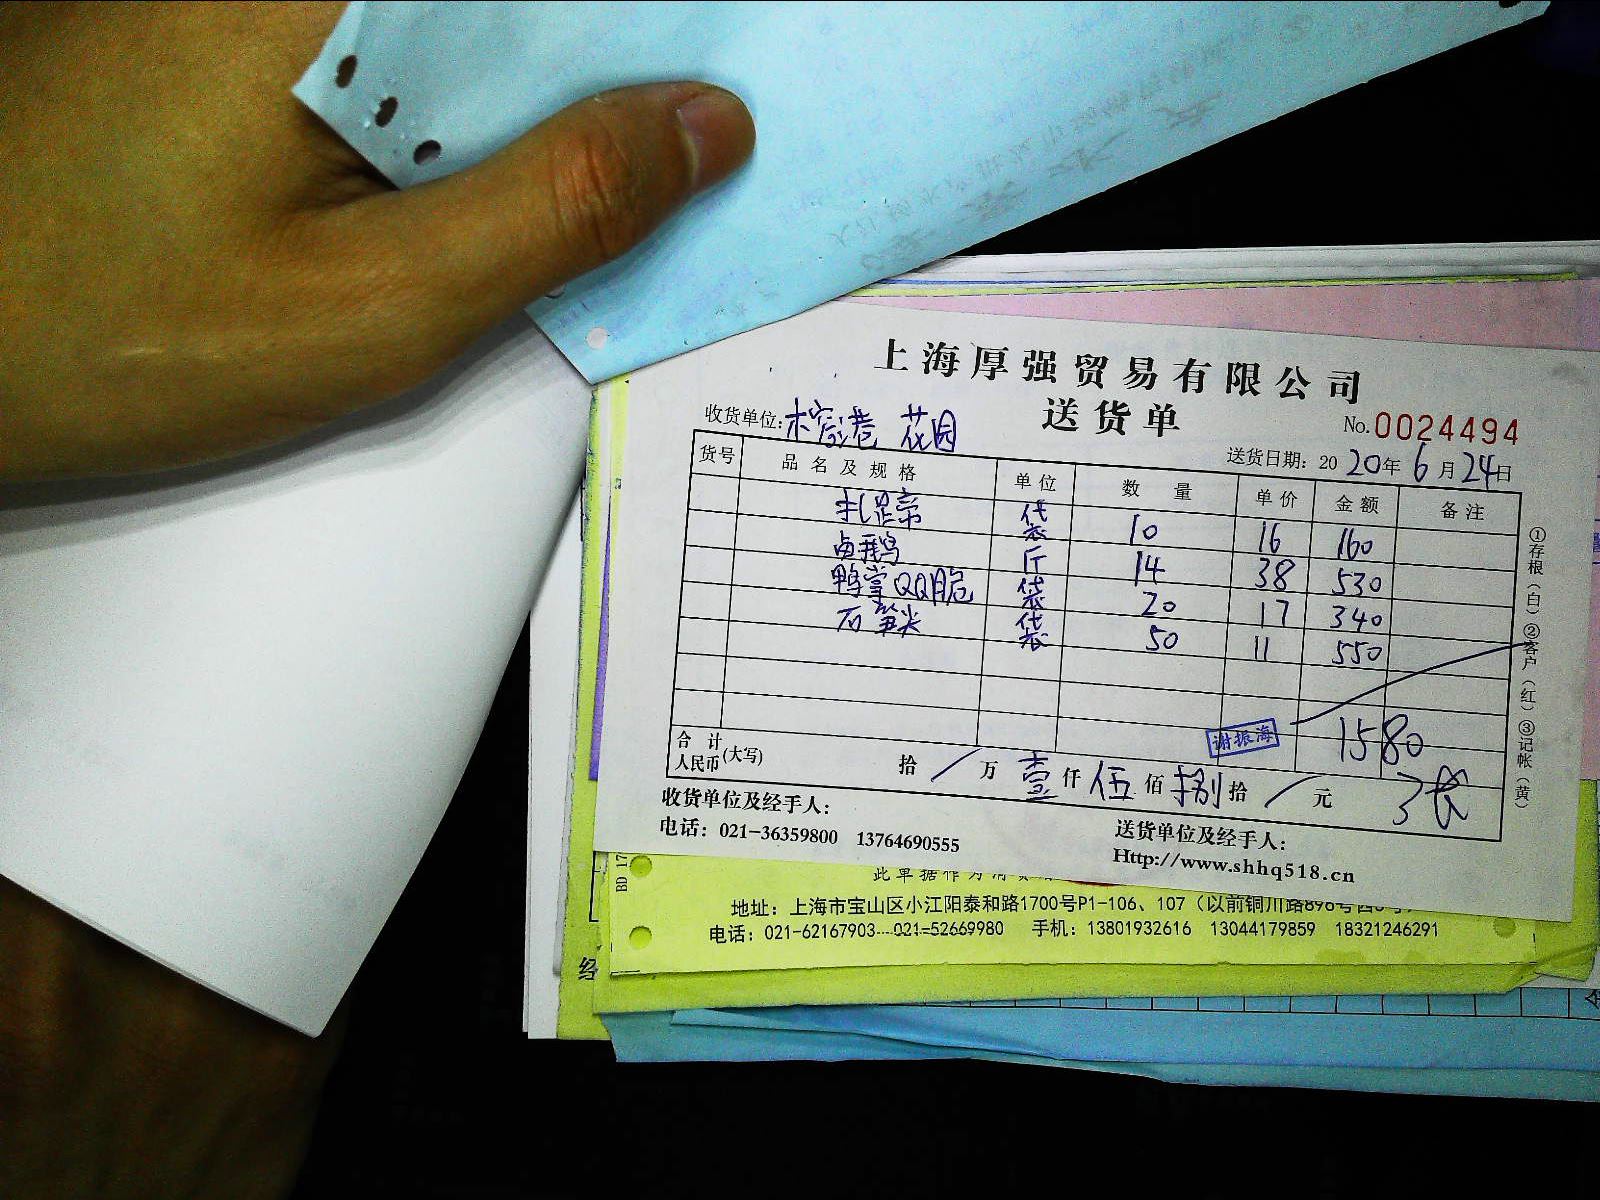 上海厚强贸易有限公司
送货单
No.0024494
收货单位: 榕港 花园
送货日期: 2020年6月24日
货号 品名及规格 单位 数量 单价 金额 备注
扎蹄 袋 10 16 160
卤鹅 斤 14 38 530
鸭掌QQ脆 袋 20 17 340
石笋尖 袋 50 11 550
谢振海 1580
合计人民币(大写) 拾/万壹仟伍佰捌拾/元
收货单位及经手人:
电话: 021-36359800 13764690555
送货单位及经手人:
Http://www.shhq518.cn
①存根(白)②客户(红)③记帐(黄)
BD 17
地址: 上海市宝山区小江阳泰和路1700号P1-106、107 (以前铜川路896号
电话: 021-62167903 021-52669980 手机: 13801932616 13044179859 18321246291
经